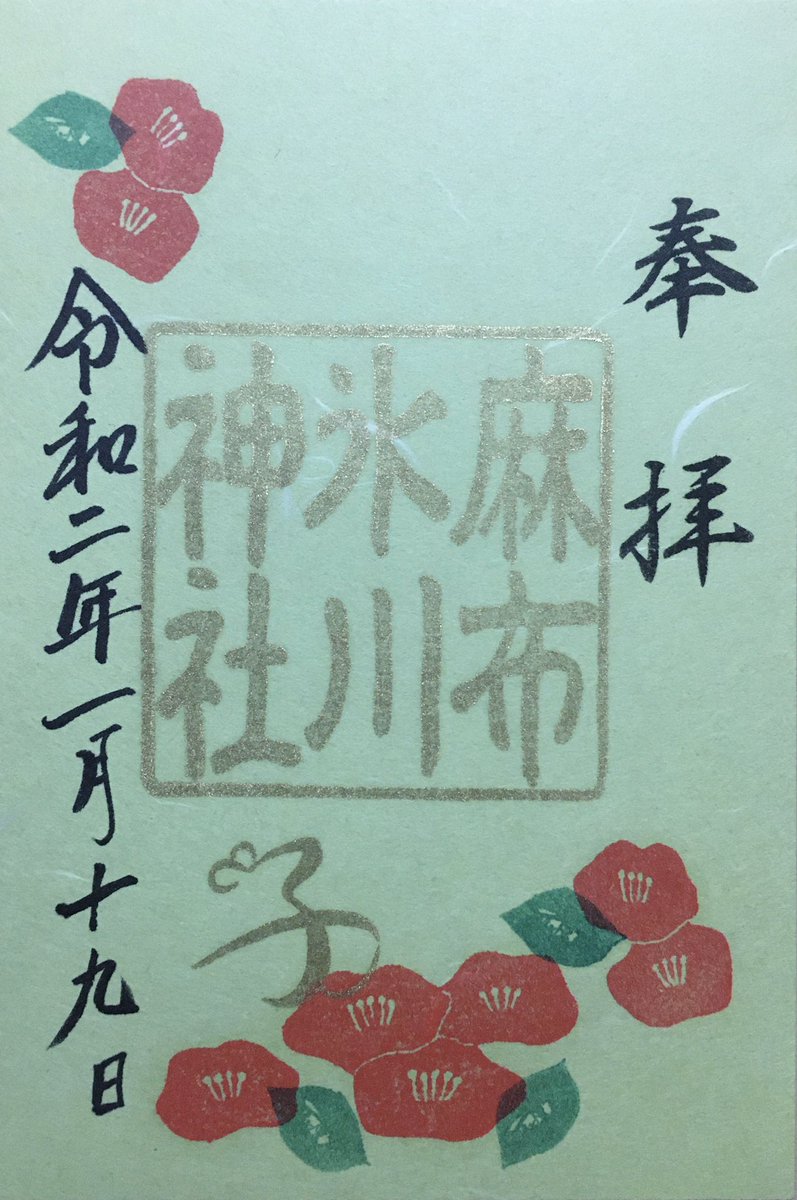 奉拝
麻布
氷川
神社
子
令和二年一月十九日